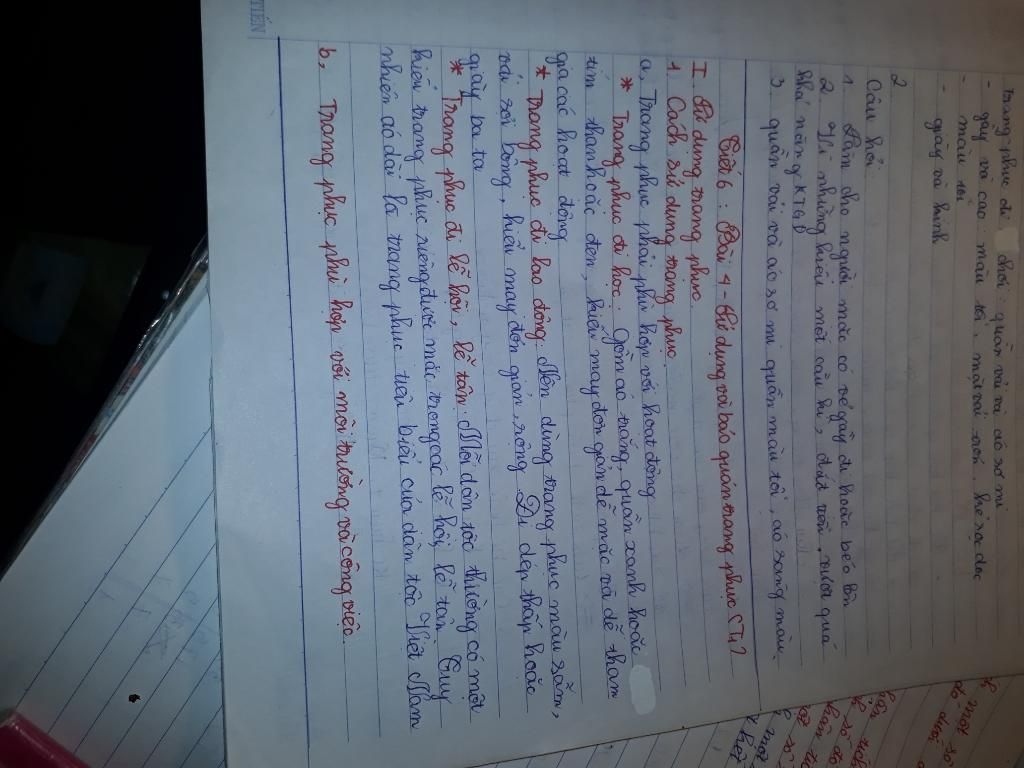 Trang phục đi chơi: quần vải và áo sơ mi
- gây và cao: màu tối, mặt vải trơn, kẻ sọc dọc
- màu
- giày và
2.
Câu hỏi:
1. Làm cho người mặc có vẻ gầy đi hoặc béo lên
2. Vì những kiểu mốt cầu kì, đắt tiền, vượt quá
khả năng KTGĐ
3. quần vải và áo sơ mi quần màu tối, áo sáng màu.
Tiết 6: Bài 4 - Sử dụng và bảo quản trang phục (T1)
I. Sử dụng trang phục.
1. Cách sử dụng trang phục.
a, Trang phục phải phù hợp với hoạt động
* Trang phục đi học: Gồm áo trắng, quần xanh hoặc
tím than hoặc đen, kiểu may đơn giản dễ mặc và dễ tham
gia các hoạt động
* Trang phục đi lao động: Nên dùng trang phục màu sẫm,
vải sợi bông, kiểu may đơn giản, rộng. Đi dép thấp hoặc
giày ba ta
* Trang phục đi lễ hội, lễ tân: Mỗi dân tộc thường có một
kiểu trang phục riêng được mặc trong các lễ hội, lễ tân. Tuy
nhiên áo dài là trang phục tiêu biểu của dân tộc Việt Nam
b, Trang phục phù hợp với môi trường và công việc.
TIẾN